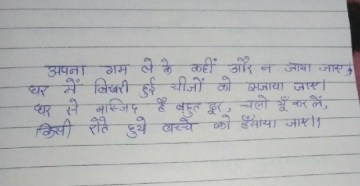 अपना गम ले के कहीं और न जाया जाए,
घर में बिखरी हुई चीजों को सजाया जाए।
घर से मस्जिद है बहुत दूर, चलो यूँ कर लें,
किसी रोते हुये बच्चे को हँसाया जाए।।